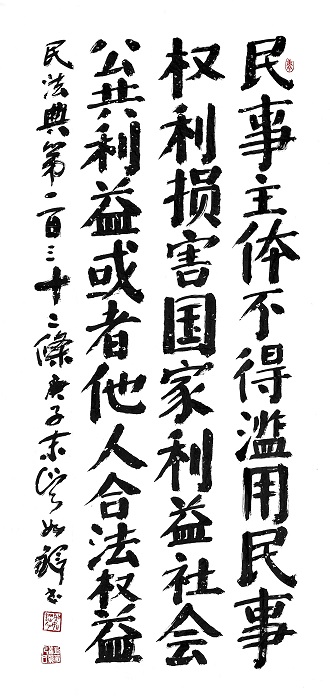 民事主体不得滥用民事
权利损害国家利益社会
公共利益或者他人合法权益
民法典第一百三十二條庚子